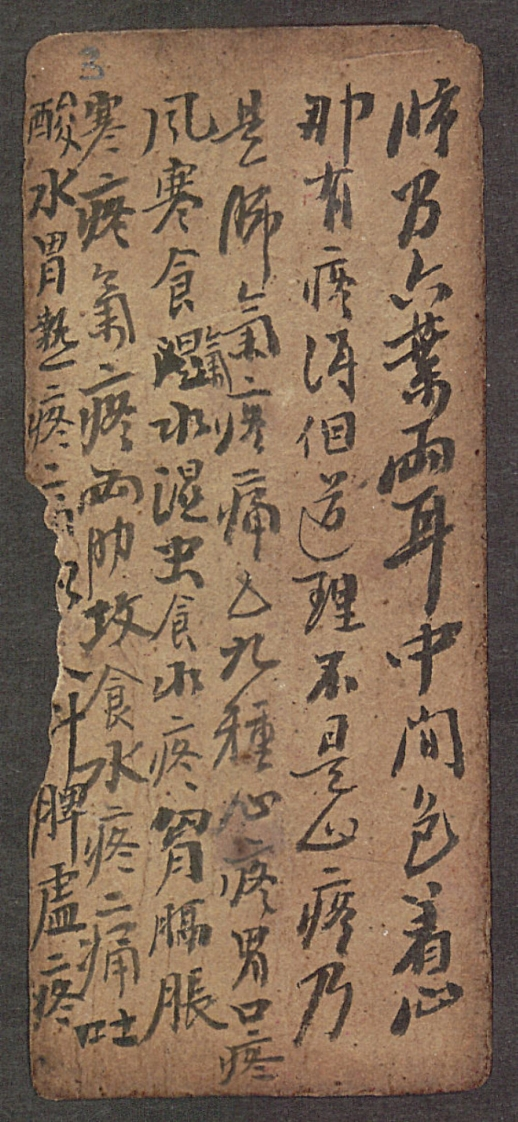 肺乃六葉兩耳中間包着心
那有疼得個道理不是心疼乃
是肺氣疼痛也九種心疼胃口疼
風寒食濕氣水混虫食水疼胃膈脹
寒疼氣疼兩肋攻食水疼痛吐
酸水胃熱疼脾虛疼
3